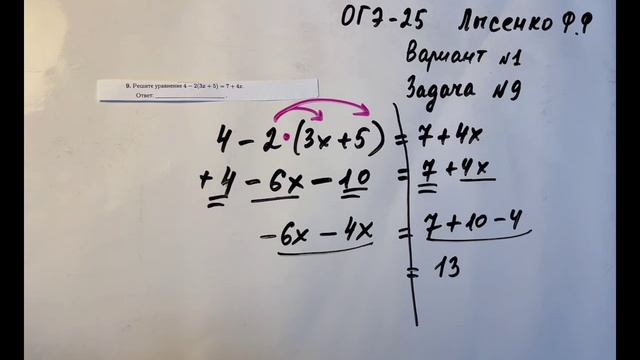 ОГЭ-25 Лысенко Ф.Ф
Вариант №1
Задача №9
9. Решите уравнение 4 − 2(3x + 5) = 7 + 4x.
Ответ: ____________
4 - 2 · (3x + 5) = 7 + 4x
+4 - 6x - 10 = 7 + 4x
-6x - 4x = 7 + 10 - 4
= 13